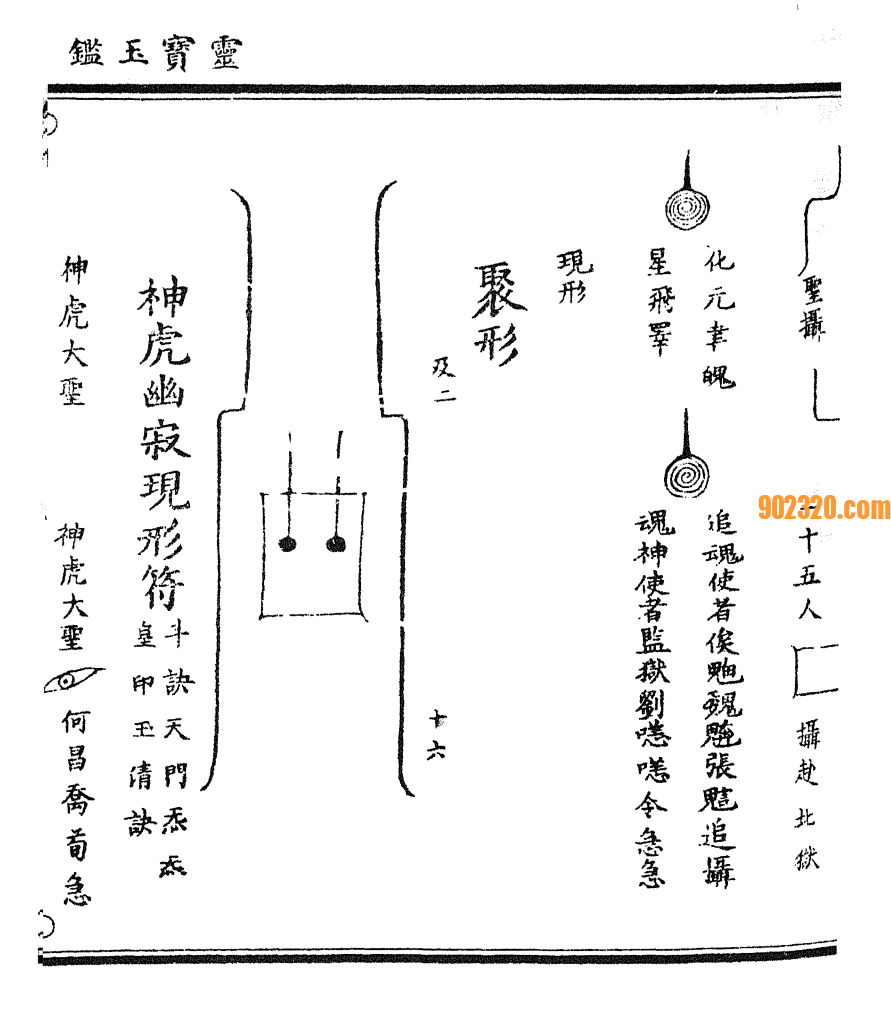 靈寶玉鑑
聖攝
二十五人
攝赴北獄
化元聿魄
追魂使者俟魈魂魒張魕追攝
星飛睪
魂神使者監獄劉噁噁令急急
現形
聚形
及二
十六
神虎幽寂現形符
斗訣天門炁炁
皇印玉清訣
神虎大聖
神虎大聖
何昌喬荀急
902320.com